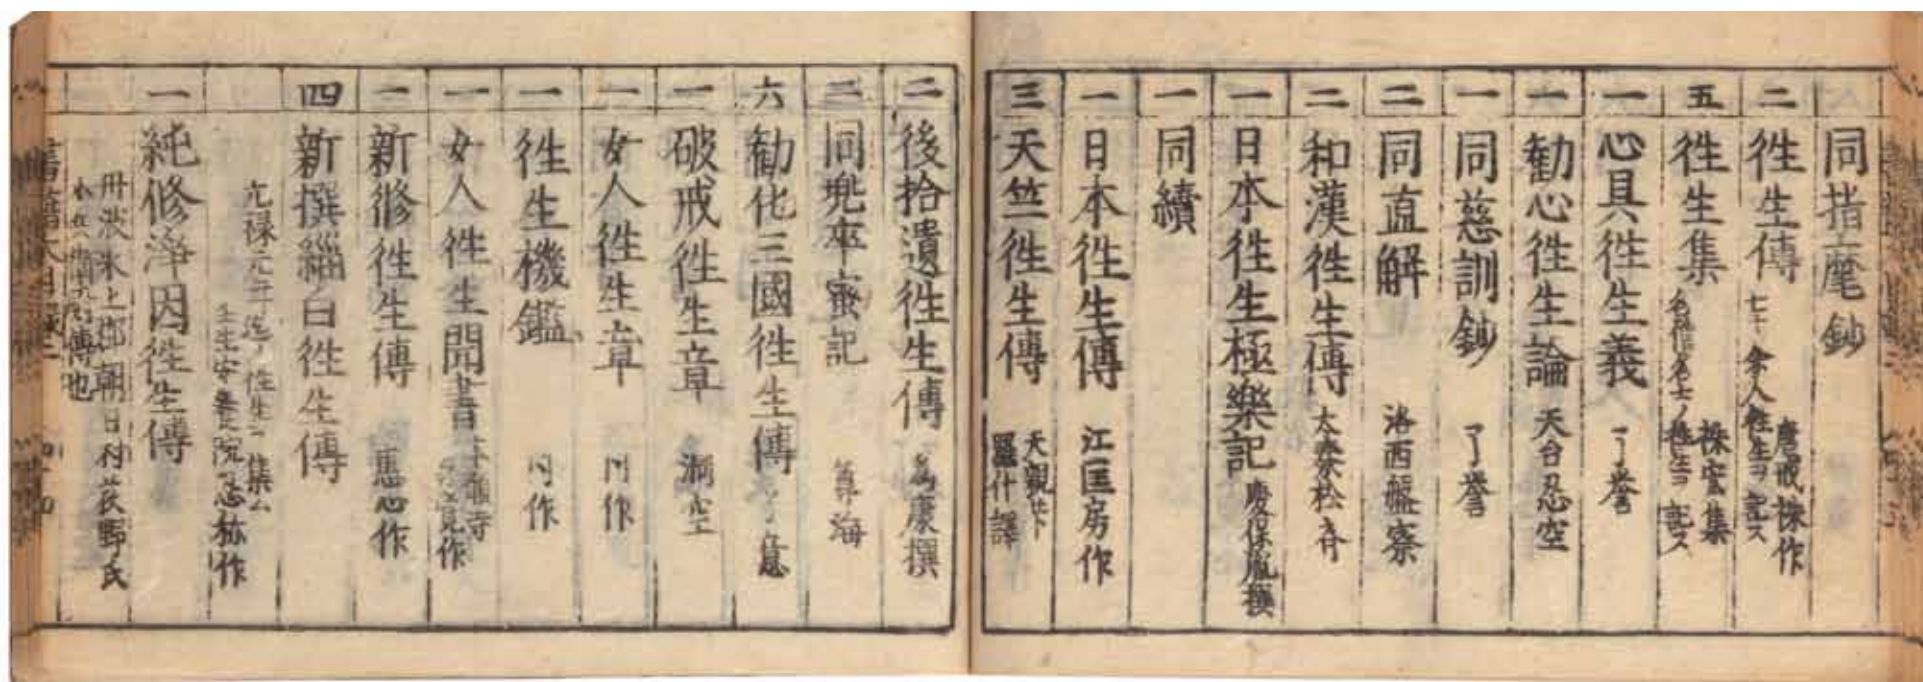 同指麾鈔
二 徃生傳 唐戒 作
七十余人徃生ヲ記ス
五 徃生集 株宏集
名僧名士ノ徃生ヲ記ス
一 心具徃生義 了誉
一 勧心徃生論 天台忍空
一 同慈訓鈔 了誉
二 同直解 洛西 察
二 和漢徃生傳 太秦松斎
一 日本徃生極樂記 慶保胤撰
一 同續
一 日本徃生傳 江匡房作
三 天竺徃生傳 天親
羅什譯
二 後拾遺徃生傳 為康撰
二 同兜率蜜記 尊海
六 勧化三國徃生傳 了意
一 破戒徃生章 澗空
一 女人徃生章 同作
一 徃生機鑑 同作
一 女人徃生聞書 覚作
一 新修徃生傳 恵心作
四 新撰緇白徃生傳
元禄元年迄ノ徃生ヲ集ム
院 作
一 純修浄因徃生傳
丹波氷上郡朝日村荻野氏
傳也
書籍大目